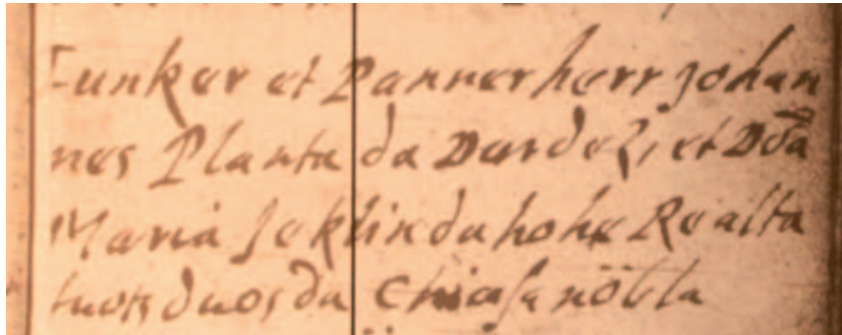 Junker et Pannerherr Johan
nes Planta da Dardezi et Dōa
Maria Jeklin da hohe Realta
tuots duos da Chiasa nöbla